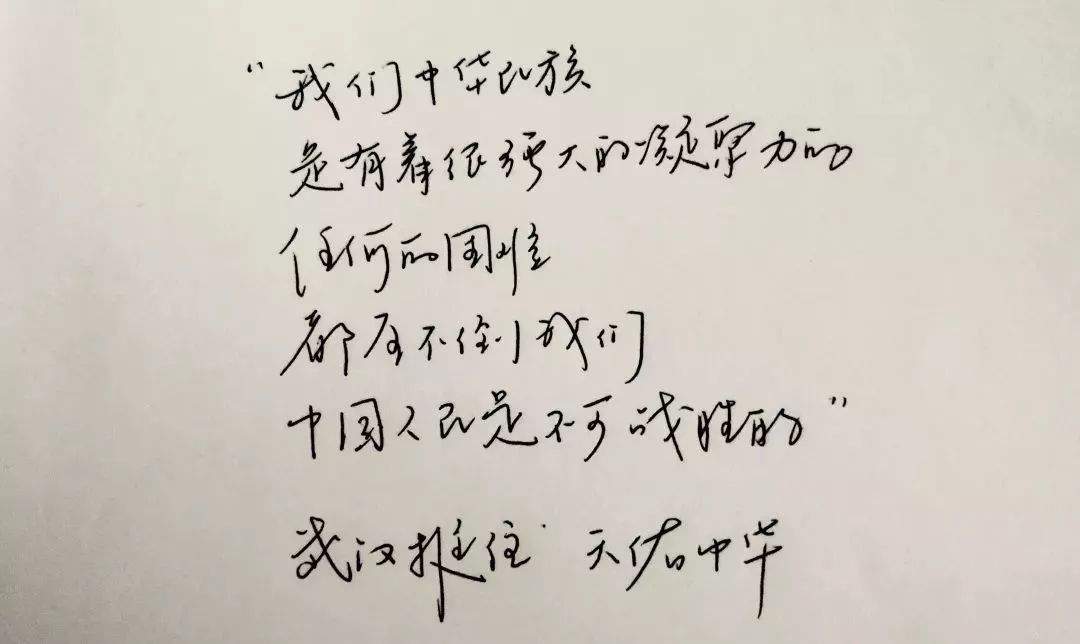 “我们中华民族
是有着很强大的凝聚力的
任何的困难
都压不倒我们
中国人民是不可战胜的”
武汉挺住 天佑中华